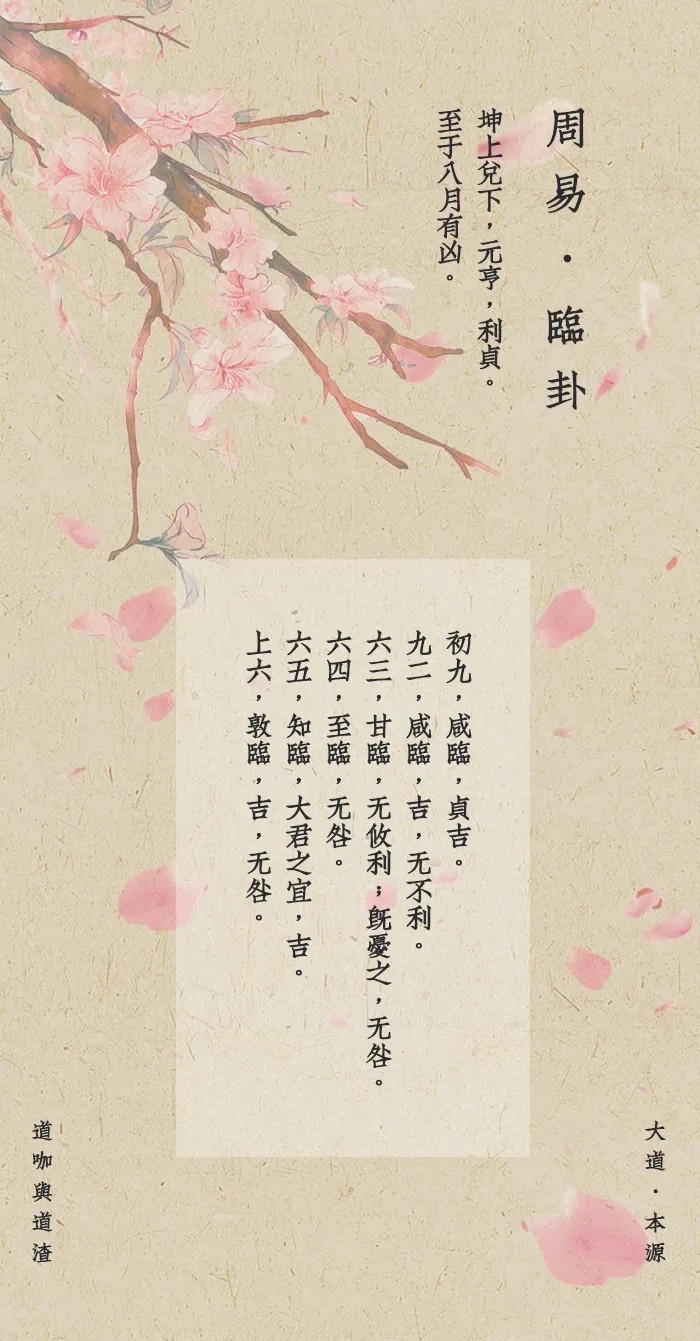 周易·臨卦
坤上兌下，元亨，利貞。
至于八月有凶。
初九，咸臨，貞吉。
九二，咸臨，吉，无不利。
六三，甘臨，无攸利；既憂之，无咎。
六四，至臨，无咎。
六五，知臨，大君之宜，吉。
上六，敦臨，吉，无咎。
大道·本源
道咖與道渣